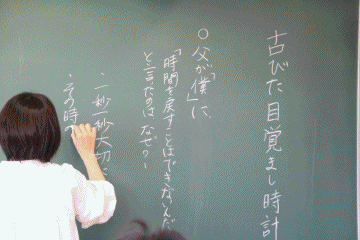 古びた目覚まし時計
○父が「僕」に、
「時間を戻すことはできないんだ
と言ったのは なぜ?
・一秒一秒大切に
・その時